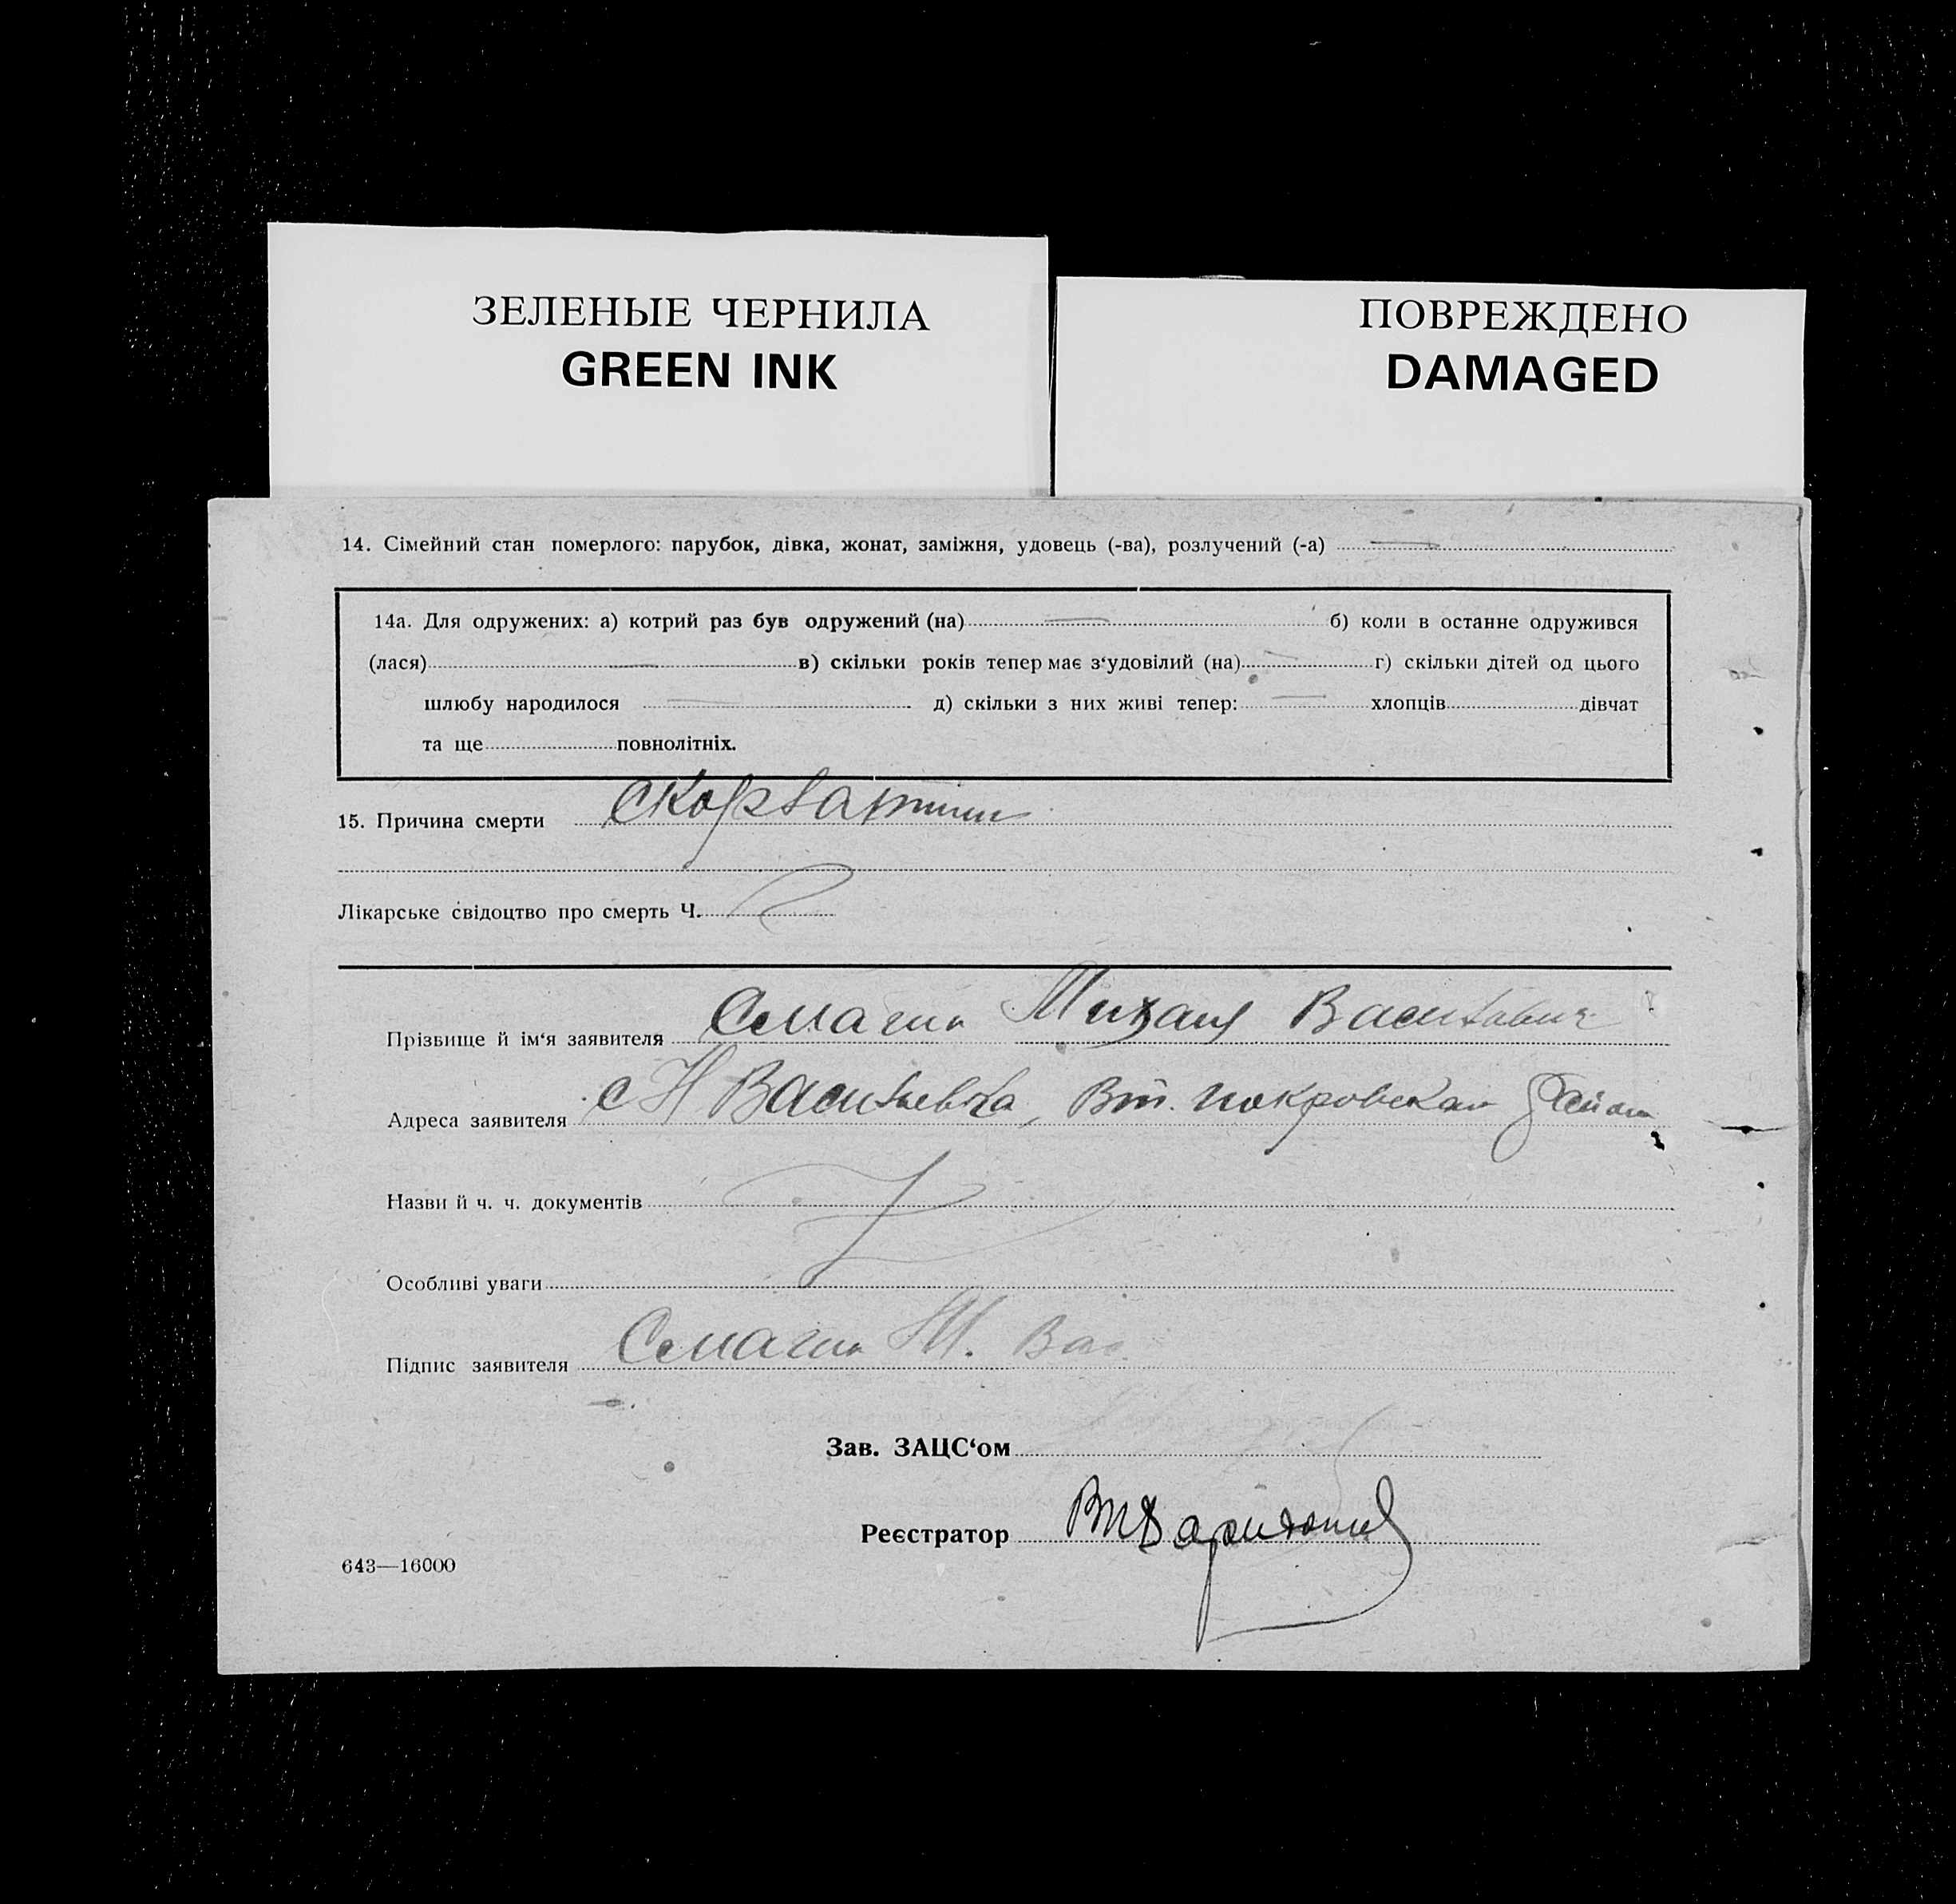 ЗЕЛЕНЫЕ ЧЕРНИЛА
GREEN INK
ПОВРЕЖДЕНО
DAMAGED
14. Сімейний стан померлого: парубок, дівка, жонат, заміжня, удовець (-ва), розлучений (-а)
14а. Для одружених: а) котрий раз був одружений (на) б) коли в останне одружився
(лася) в) скільки років тепер має з‘удовілий (на) г) скільки дітей од цього
шлюбу народилося д) скільки з них живі тепер: хлопців дівчат
та ще повнолітніх.
15. Причина смерти
Лікарське свідоцтво про смерть Ч.
Прізвище й ім‘я заявителя Семагин Михаил Васильевич
Адреса заявителя с Н Васильевка, Вт. покровская район
Назви й ч. ч. документів
Особливі уваги
Підпис заявителя Семагин М. Вас.
Зав. ЗАЦС‘ом
Реєстратор
643—16000